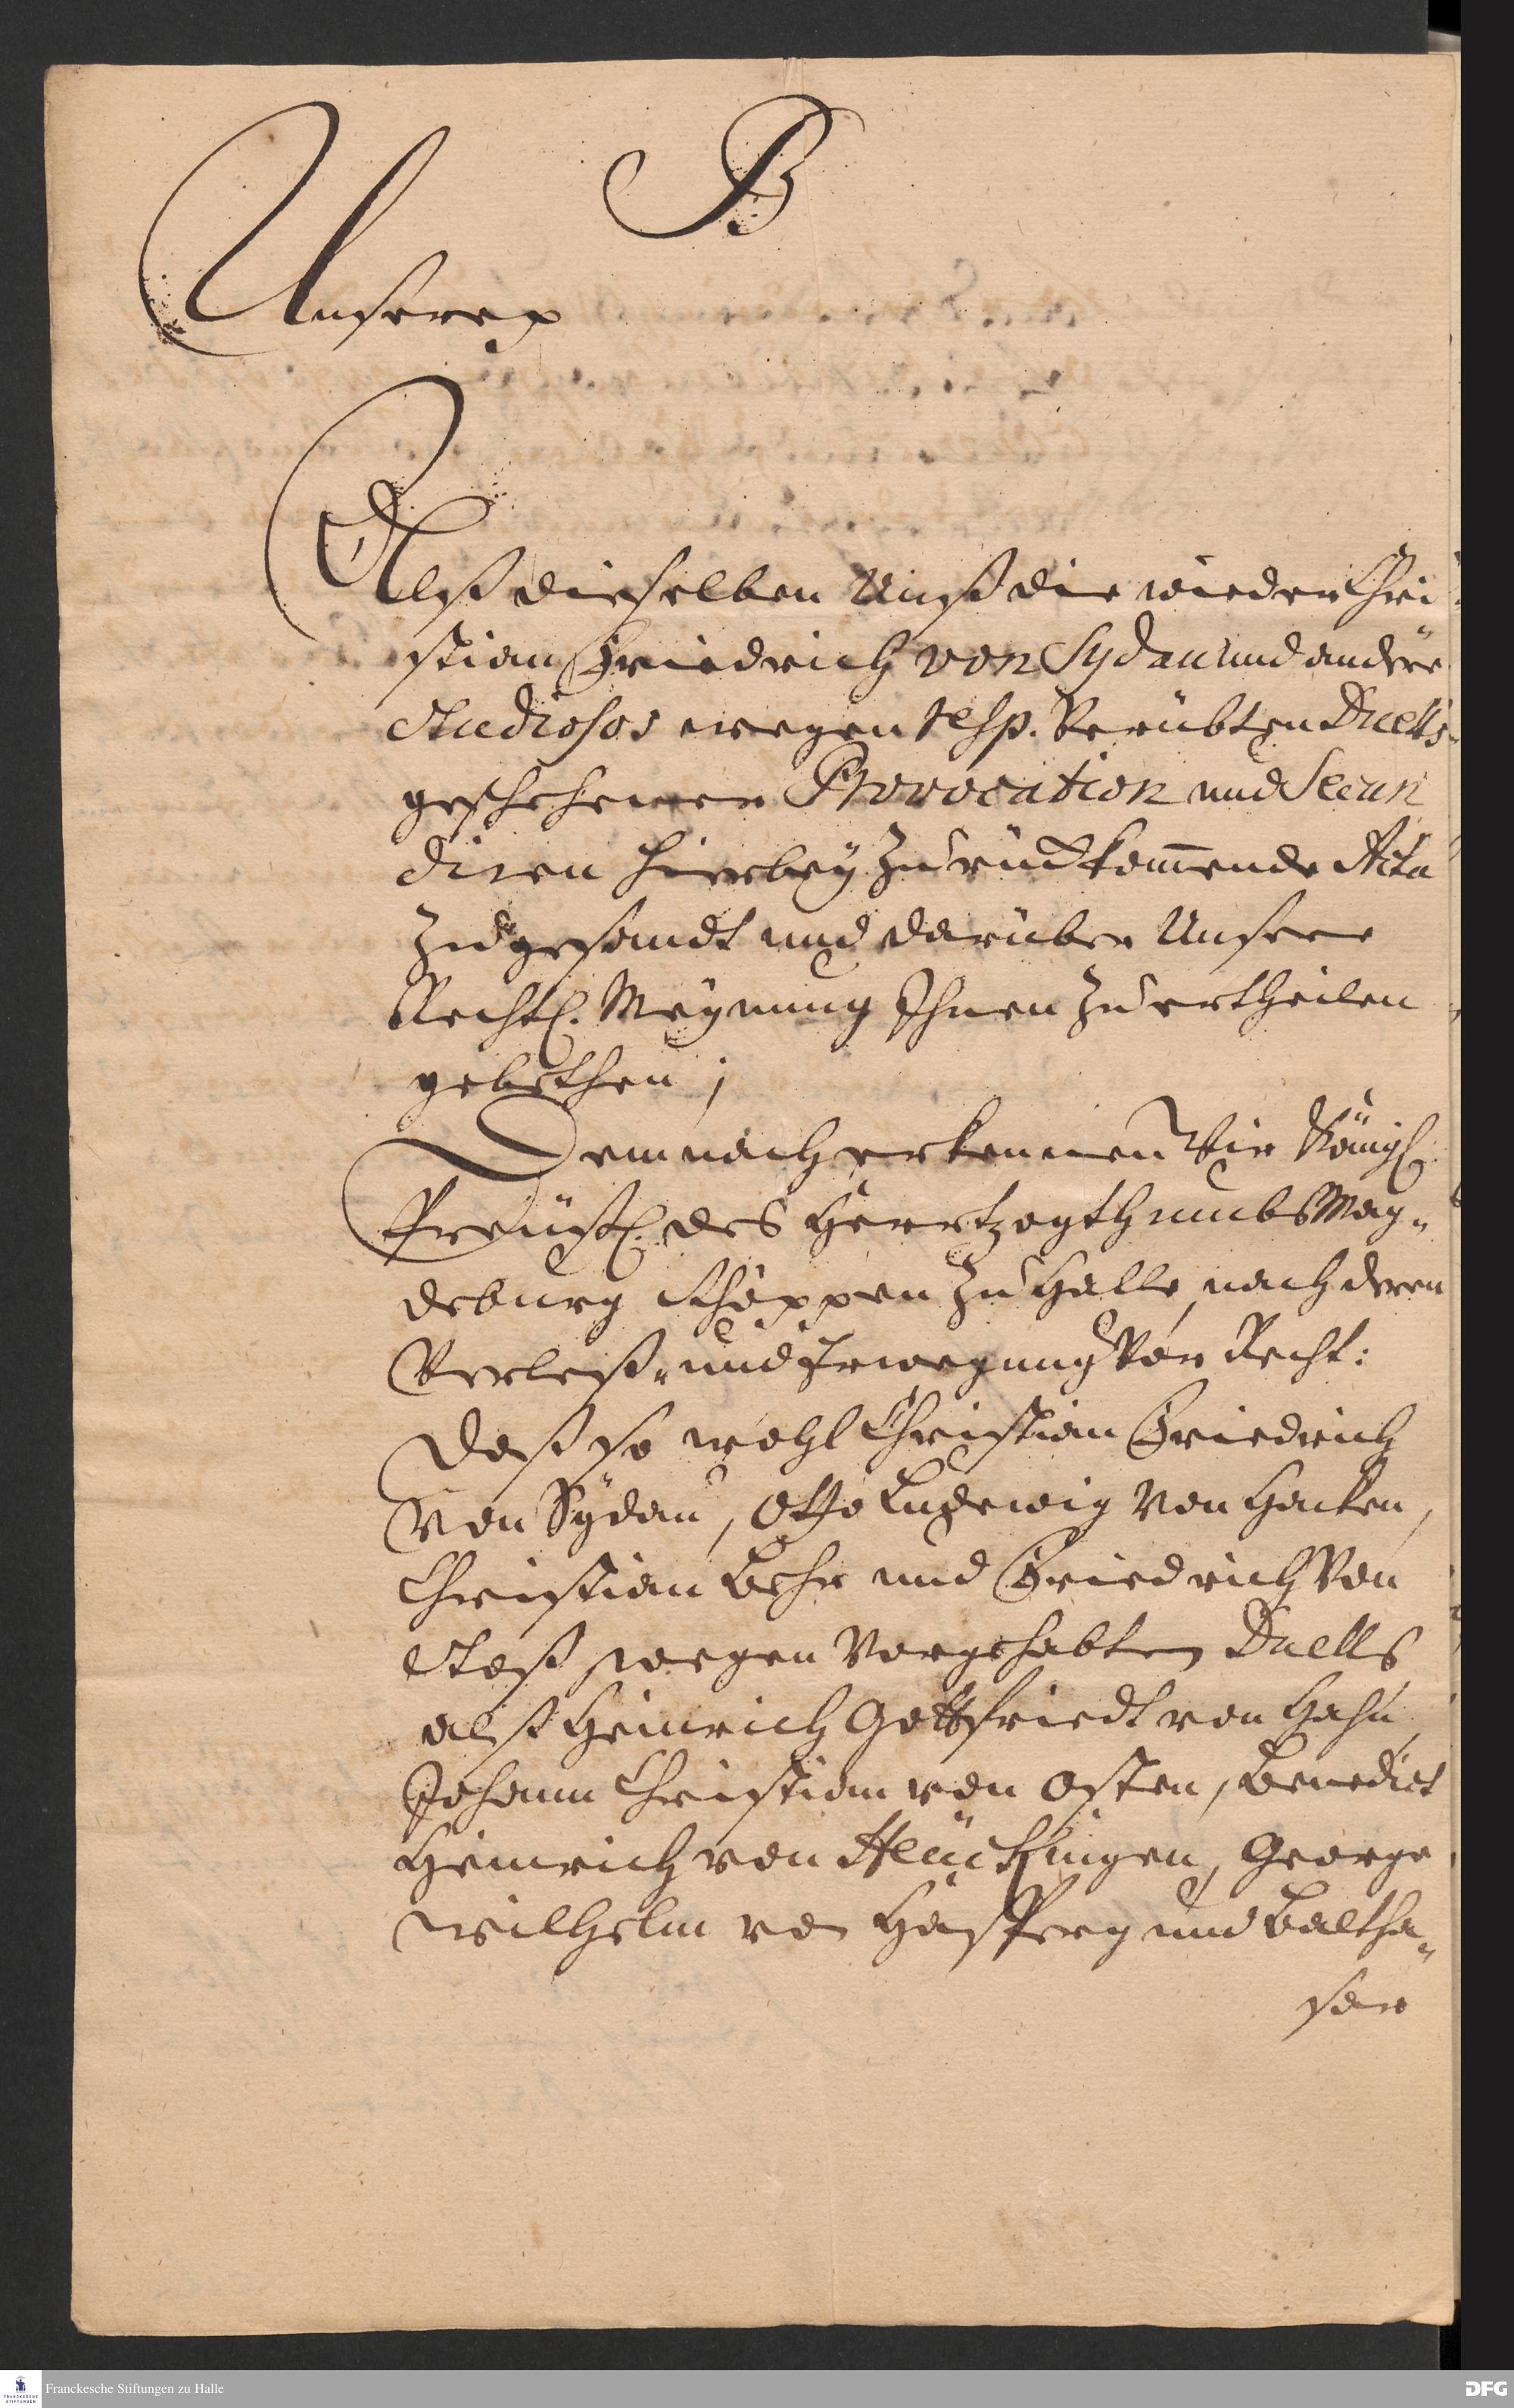 B
Unserep
Alß dieselben Unß die wieder Chri-
stian Friedrich von Sydau und andere
Studiosos wegen resp. Verübten Duells,
geschehener Provocation und Secun
diren hierbey zurückkom̅ende Acta
zugesandt und darüber Unsere
Rechtl. Meynung Ihnen zu ertheilen
gebethen;
Demnach erkennen Wir Königl.
Preüßl. des Herrtzogthumbs Mag-
deburg Schöppen zu Halle, nach deren
Verleß- und Erwegung Vor Recht:
Daß so wohl Christian Friedrich
Von Sydau, Otto Ludewig Von Hacken,
Christian Behr und Friedrich Von
wegen Vorgehabten Duells
alß Heinrich Gottfriedt von Hahn,
Johann Christian von Osten, Benedict
Heinrich von George
Wilhelm von und Baltha-
sar
Franckesche Stiftungen zu Halle
DFG